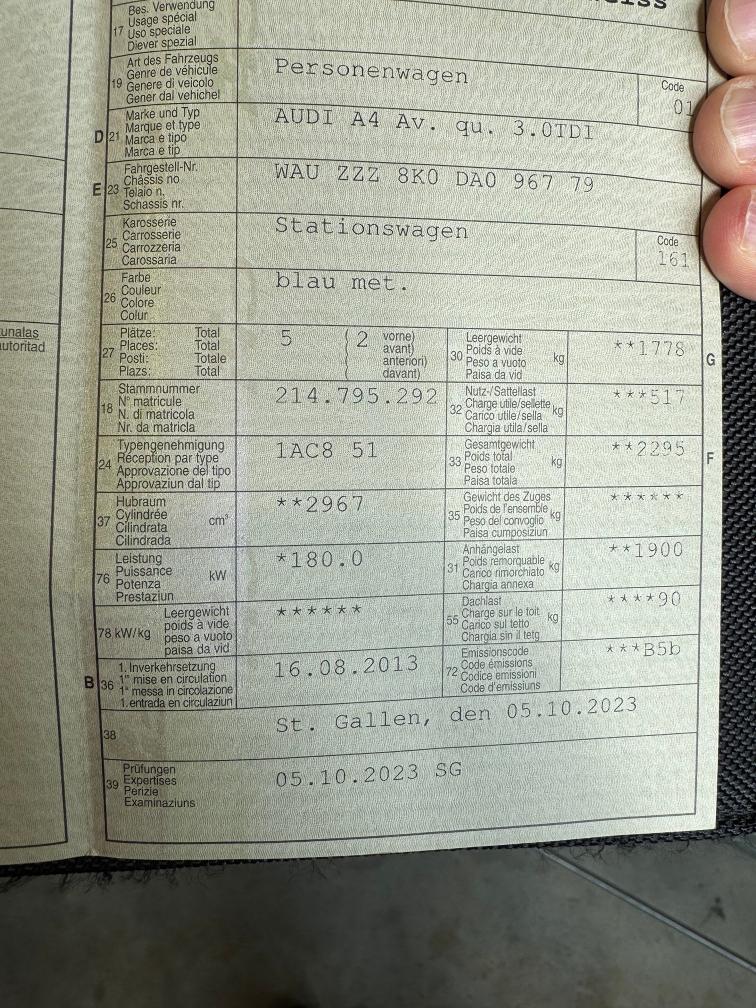 Bes. Verwendung
Usage spécial
17 Uso speciale
Diever spezial
Art des Fahrzeugs
Genre de véhicule
19 Genere di veicolo
Gener dal vehichel
Personenwagen
Code
01
D 21 Marke und Typ
Marque et type
Marca e tipo
Marca e tip
AUDI A4 Av. qu. 3.0TDI
E 23 Fahrgestell-Nr.
Châssis no
Telaio n.
Schassis nr.
WAU ZZZ 8K0 DA0 967 79
25 Karosserie
Carrosserie
Carrozzeria
Carossaria
Stationswagen
Code
161
26 Farbe
Couleur
Colore
Colur
blau met.
27 Plätze: Total
Places: Total
Posti: Totale
Plazs: Total
5 ( 2 vorne)
avant)
anteriori)
davant)
30 Leergewicht
Poids à vide
Peso a vuoto
Paisa da vid
kg
**1778
G
18 Stammnummer
N° matricule
N. di matricola
Nr. da matricla
214.795.292
32 Nutz-/Sattellast
Charge utile/sellette
Carico utile/sella
Chargia utila/sella
kg
***517
24 Typengenehmigung
Réception par type
Approvazione del tipo
Approvaziun dal tip
1AC8 51
33 Gesamtgewicht
Poids total
Peso totale
Paisa totala
kg
**2295
F
37 Hubraum
Cylindrée
Cilindrata
Cilindrada
cm³
**2967
35 Gewicht des Zuges
Poids de l'ensemble
Peso del convoglio
Paisa cumposiziun
kg
******
76 Leistung
Puissance
Potenza
Prestaziun
kW
*180.0
31 Anhängelast
Poids remorquable
Carico rimorchiato
Chargia annexa
kg
**1900
78 kW/kg Leergewicht
poids à vide
peso a vuoto
paisa da vid
******
55 Dachlast
Charge sur le toit
Carico sul tetto
Chargia sin il tetg
kg
****90
B 36 1. Inverkehrsetzung
1re mise en circulation
1a messa in circolazione
1. entrada en circulaziun
16.08.2013
72 Emissionscode
Code émissions
Codice emissioni
Code d'emissiuns
***B5b
38
St. Gallen, den 05.10.2023
39 Prüfungen
Expertises
Perizie
Examinaziuns
05.10.2023 SG